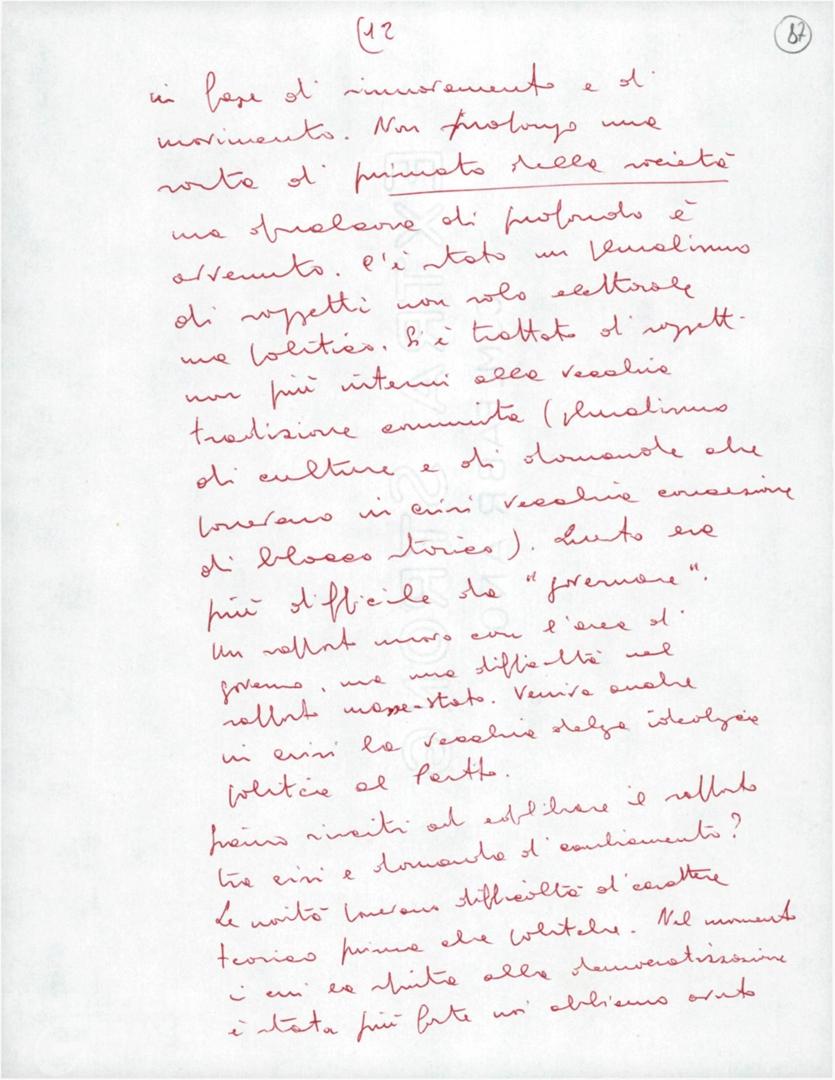 (12
87
in fase di rinnovamento e di
movimento. Non prolungo una
sorta di primato della società
ma qualcosa di profondo è
avvenuto. C'è stato un pluralismo
di soggetti non solo elettorale
ma politico. Si è trattato di soggetti
non più interni alla vecchia
tradizione comunista (pluralismo
di culture e di domande che
ponevano in crisi vecchia concezione
di blocco storico). Questo era
più difficile da "governare".
Un rapporto nuovo con l'area di
governo, ma una difficoltà nel
rapporto masse-stato. Veniva anche
in crisi la vecchia delega ideologica
politica al Partito.
siamo riusciti ad equilibrare il rapporto
tra crisi e domanda di cambiamento?
Le novità ponevano difficoltà di carattere
teorico prima che politiche. Nel momento
in cui la spinta alla democratizzazione
è stata più forte noi abbiamo avuto